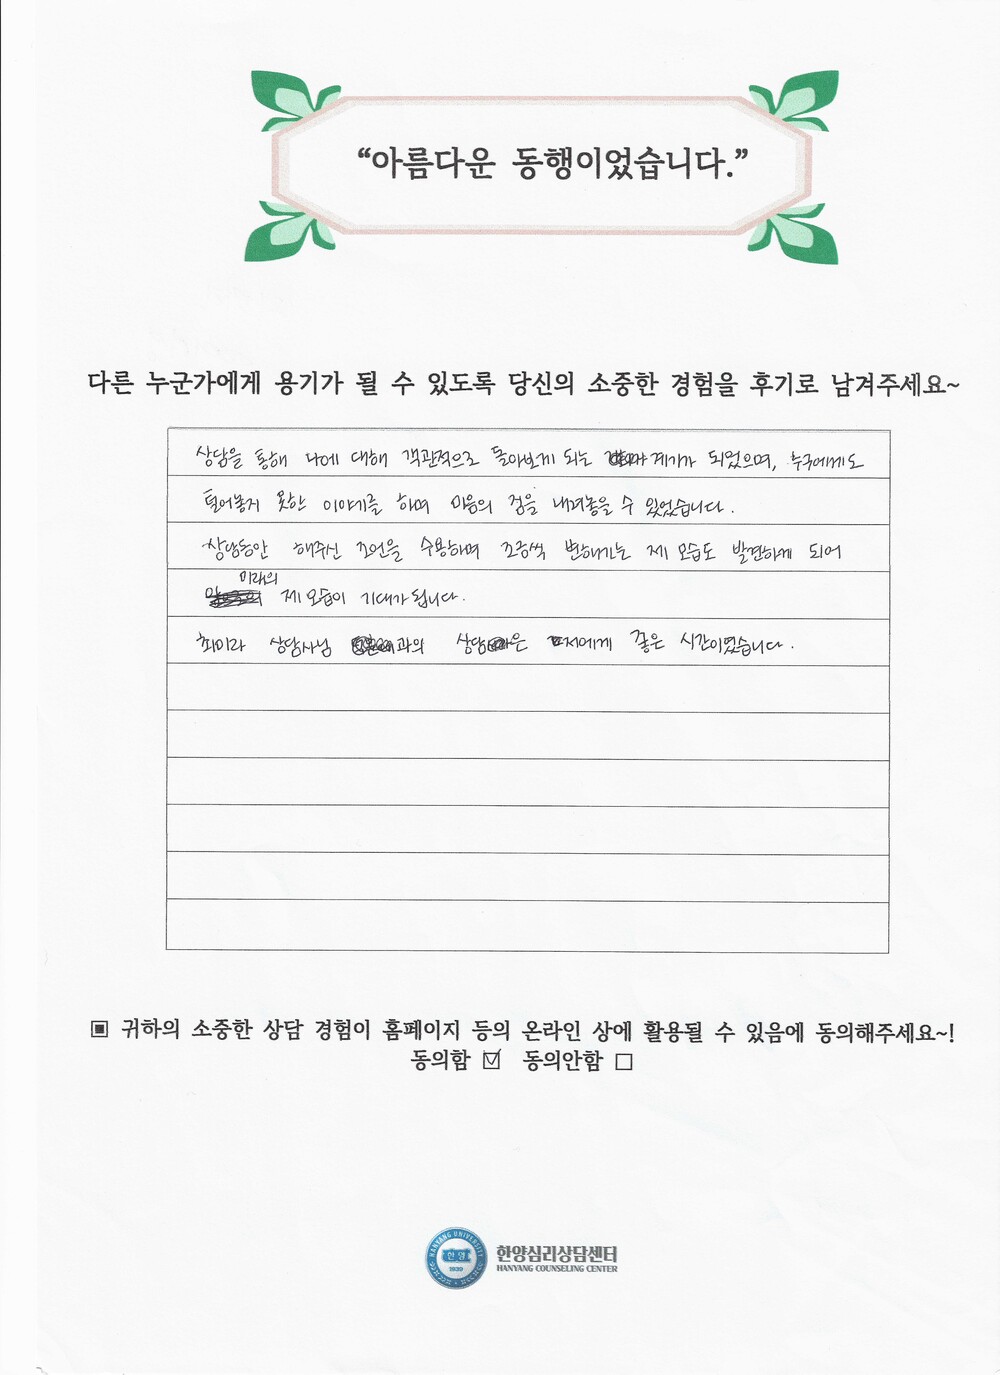 “아름다운 동행이었습니다.”
다른 누군가에게 용기가 될 수 있도록 당신의 소중한 경험을 후기로 남겨주세요~
상담을 통해 나에 대해 객관적으로 돌아보게 되는 계기가 되었으며, 누구에게도
털어놓지 못한 이야기를 하며 마음의 짐을 내려놓을 수 있었습니다.
상담동안 해주신 조언을 수용하며 조금씩 변해가는 제 모습도 발견하게 되어
미래의
제 모습이 기대가 됩니다.
최미라 상담사님 과의 상담은 저에게 좋은 시간이었습니다.
▣ 귀하의 소중한 상담 경험이 홈페이지 등의 온라인 상에 활용될 수 있음에 동의해주세요~!
동의함 ☑ 동의안함 □
HANYANG UNIVERSITY
한양
1939
한양심리상담센터
HANYANG COUNSELING CENTER